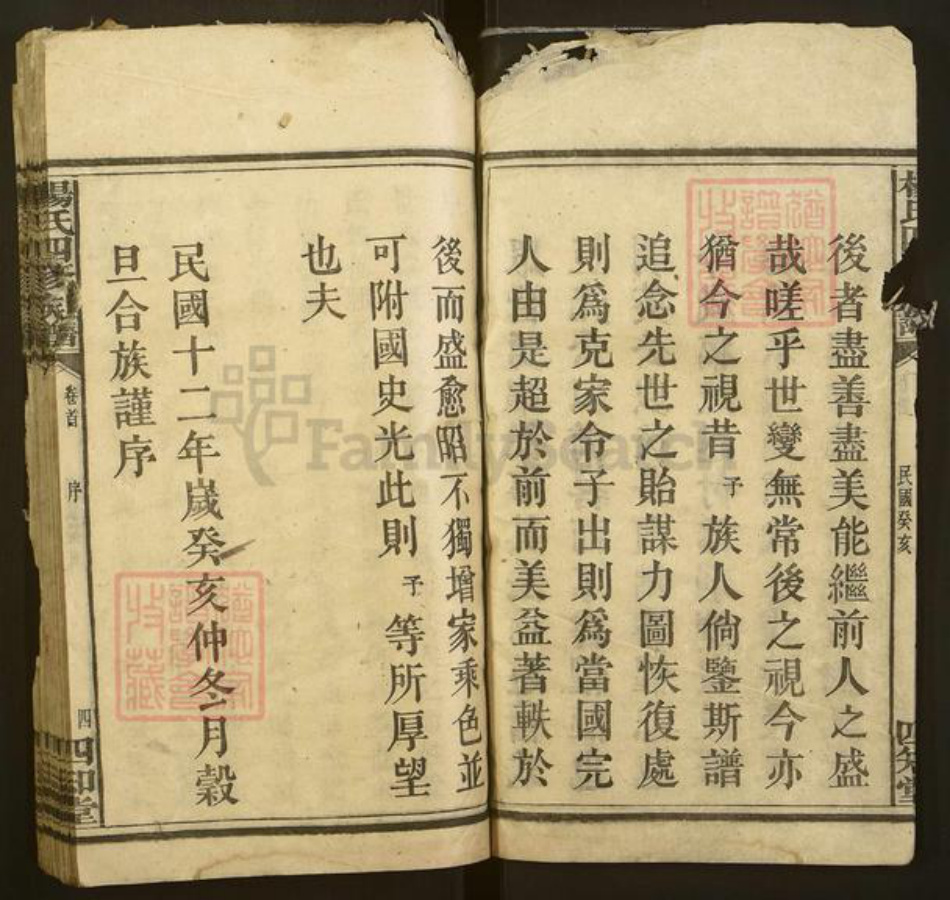 後者盡善盡美能繼前人之盛
哉嗟乎世變無常後之視今亦
猶今之視昔予族人倘鑒斯譜
追念先世之貽謀力圖恢復處
則爲克家令子出則爲當國完
人由是超於前而美益著軼於
民國癸亥
後而盛愈昭不獨增家乘色並
可附國史光此則予等所厚望
也夫
民國十二年歲癸亥仲冬月穀
旦合族謹序
楊氏四修族譜
卷首
序
四
四知堂
FamilySearch